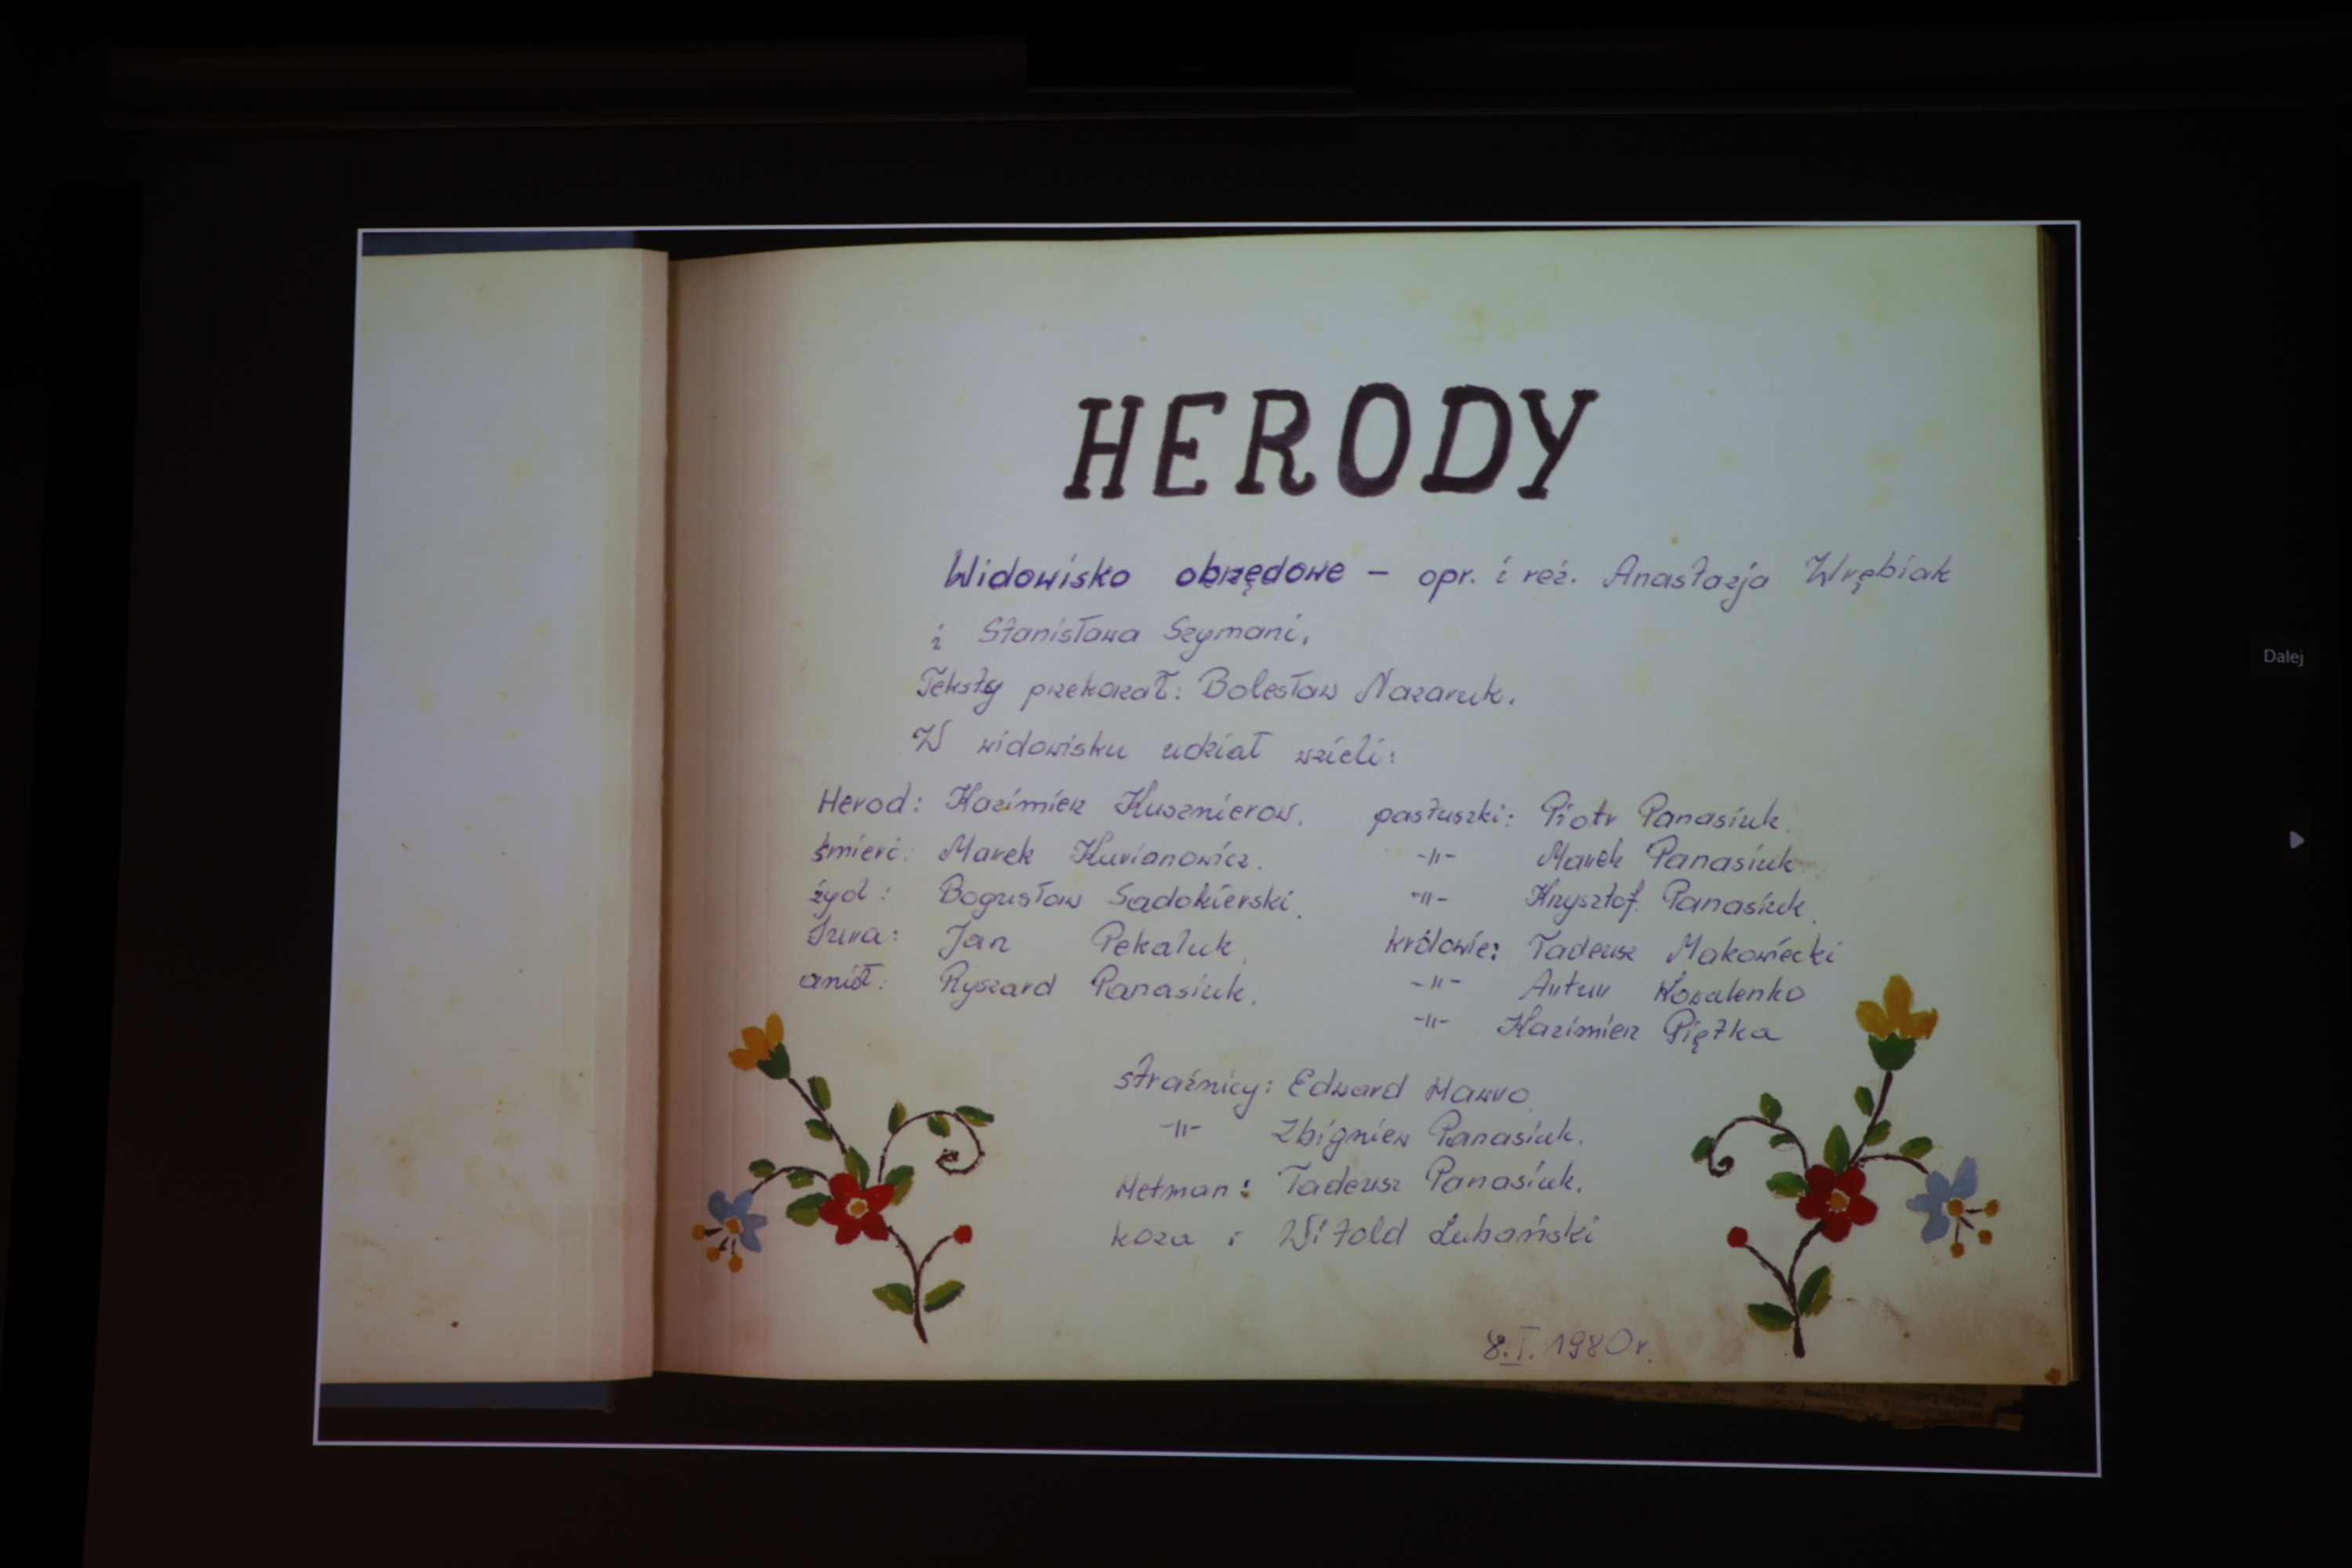 HERODY
Widowisko obrzędowe – opr. i reż. Anastazja Wrębiak
i Stanisława Szymani.
Teksty przekazał: Bolesław Nazaruk.
W widowisku udział wzieli:
Herod: Kazimierz Kusznierow.
śmierć: Marek Kurianowicz.
żyd: Bogusław Sadokierski.
Jan Pekaluk.
anioł: Ryszard Panasiuk.
pastuszki: Piotr Panasiuk.
-„- Marek Panasiuk
-„- Krzysztof Panasiuk.
królowie: Tadeusz Makowiecki
-„- Artur Kowalenko
-„- Kazimierz Piętka
strażnicy: Edward Hawro.
-„- Zbigniew Panasiuk.
Hetman: Tadeusz Panasiuk.
koza : Witold Łubański
8.I.1980r.
Dalej